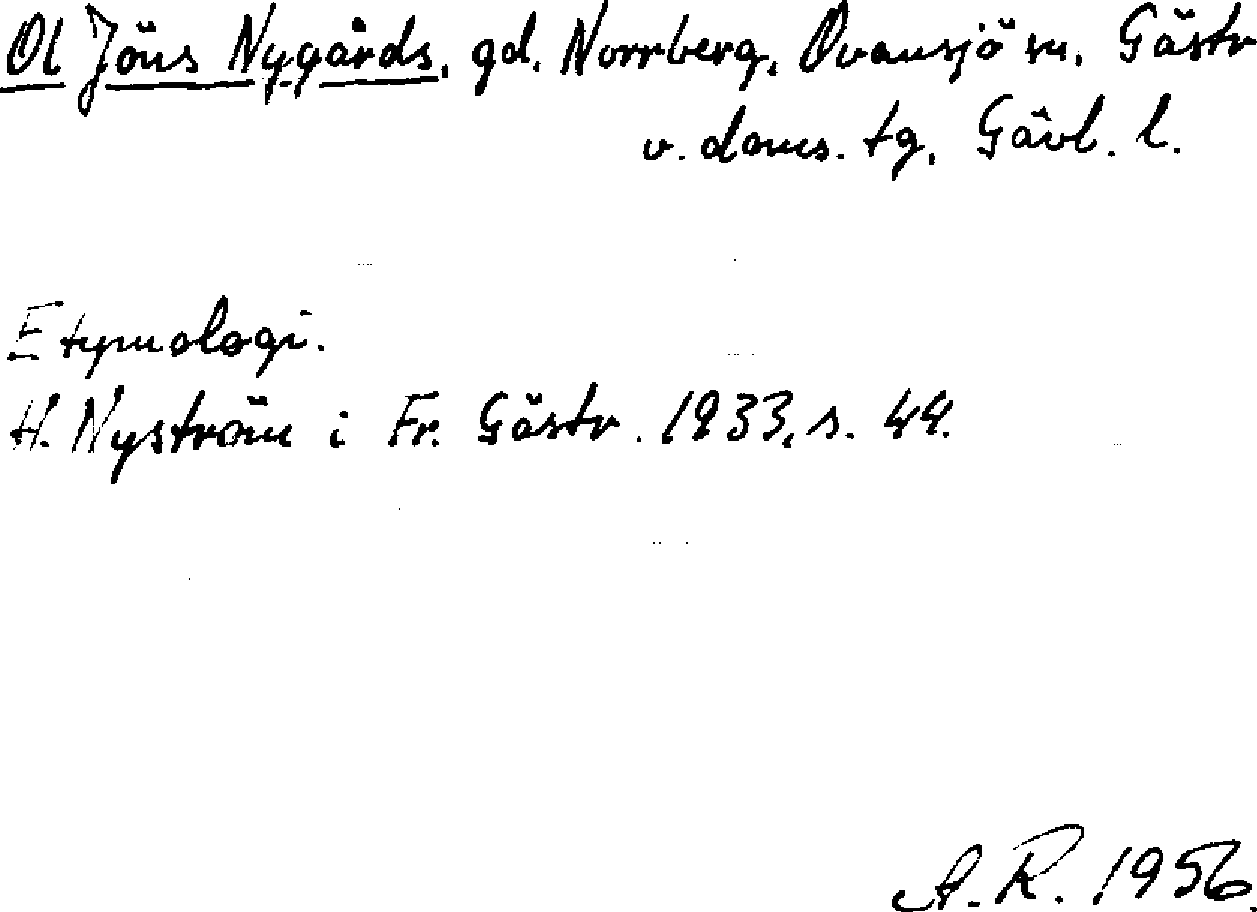 Ol Jöns Nygårds, gd, Norrberg, Ovansjö sn, Gästr
v. doms. tg, Gävl. l.
Etymologi.
H. Nyström i Fr. Gästr. 1933, s. 44.
A. R. 1956.